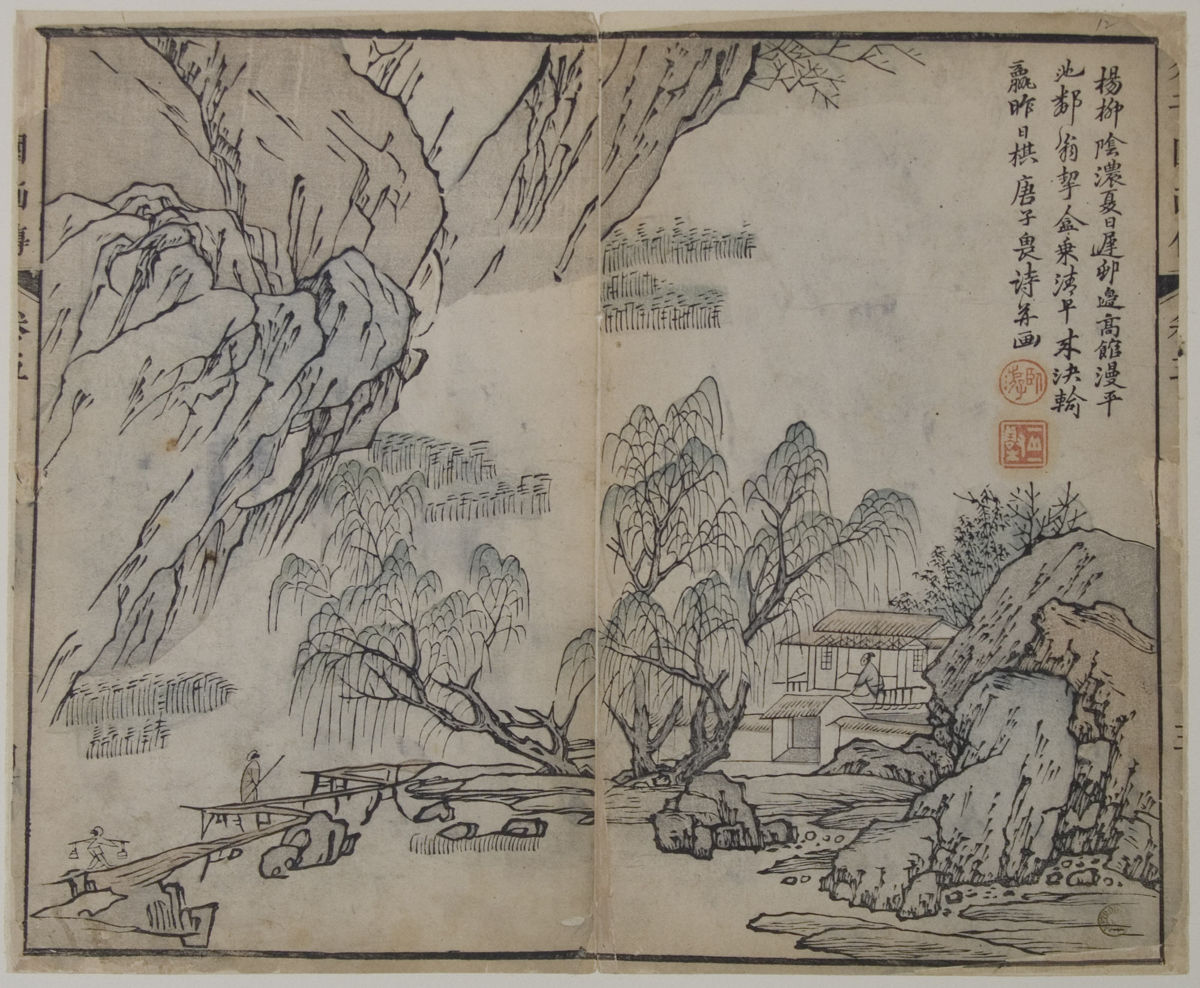 楊柳陰濃夏日遲邨邉高館漫平
池鄰翁挈盒乗清早来決輸
贏昨日棋唐子畏詩并画
12